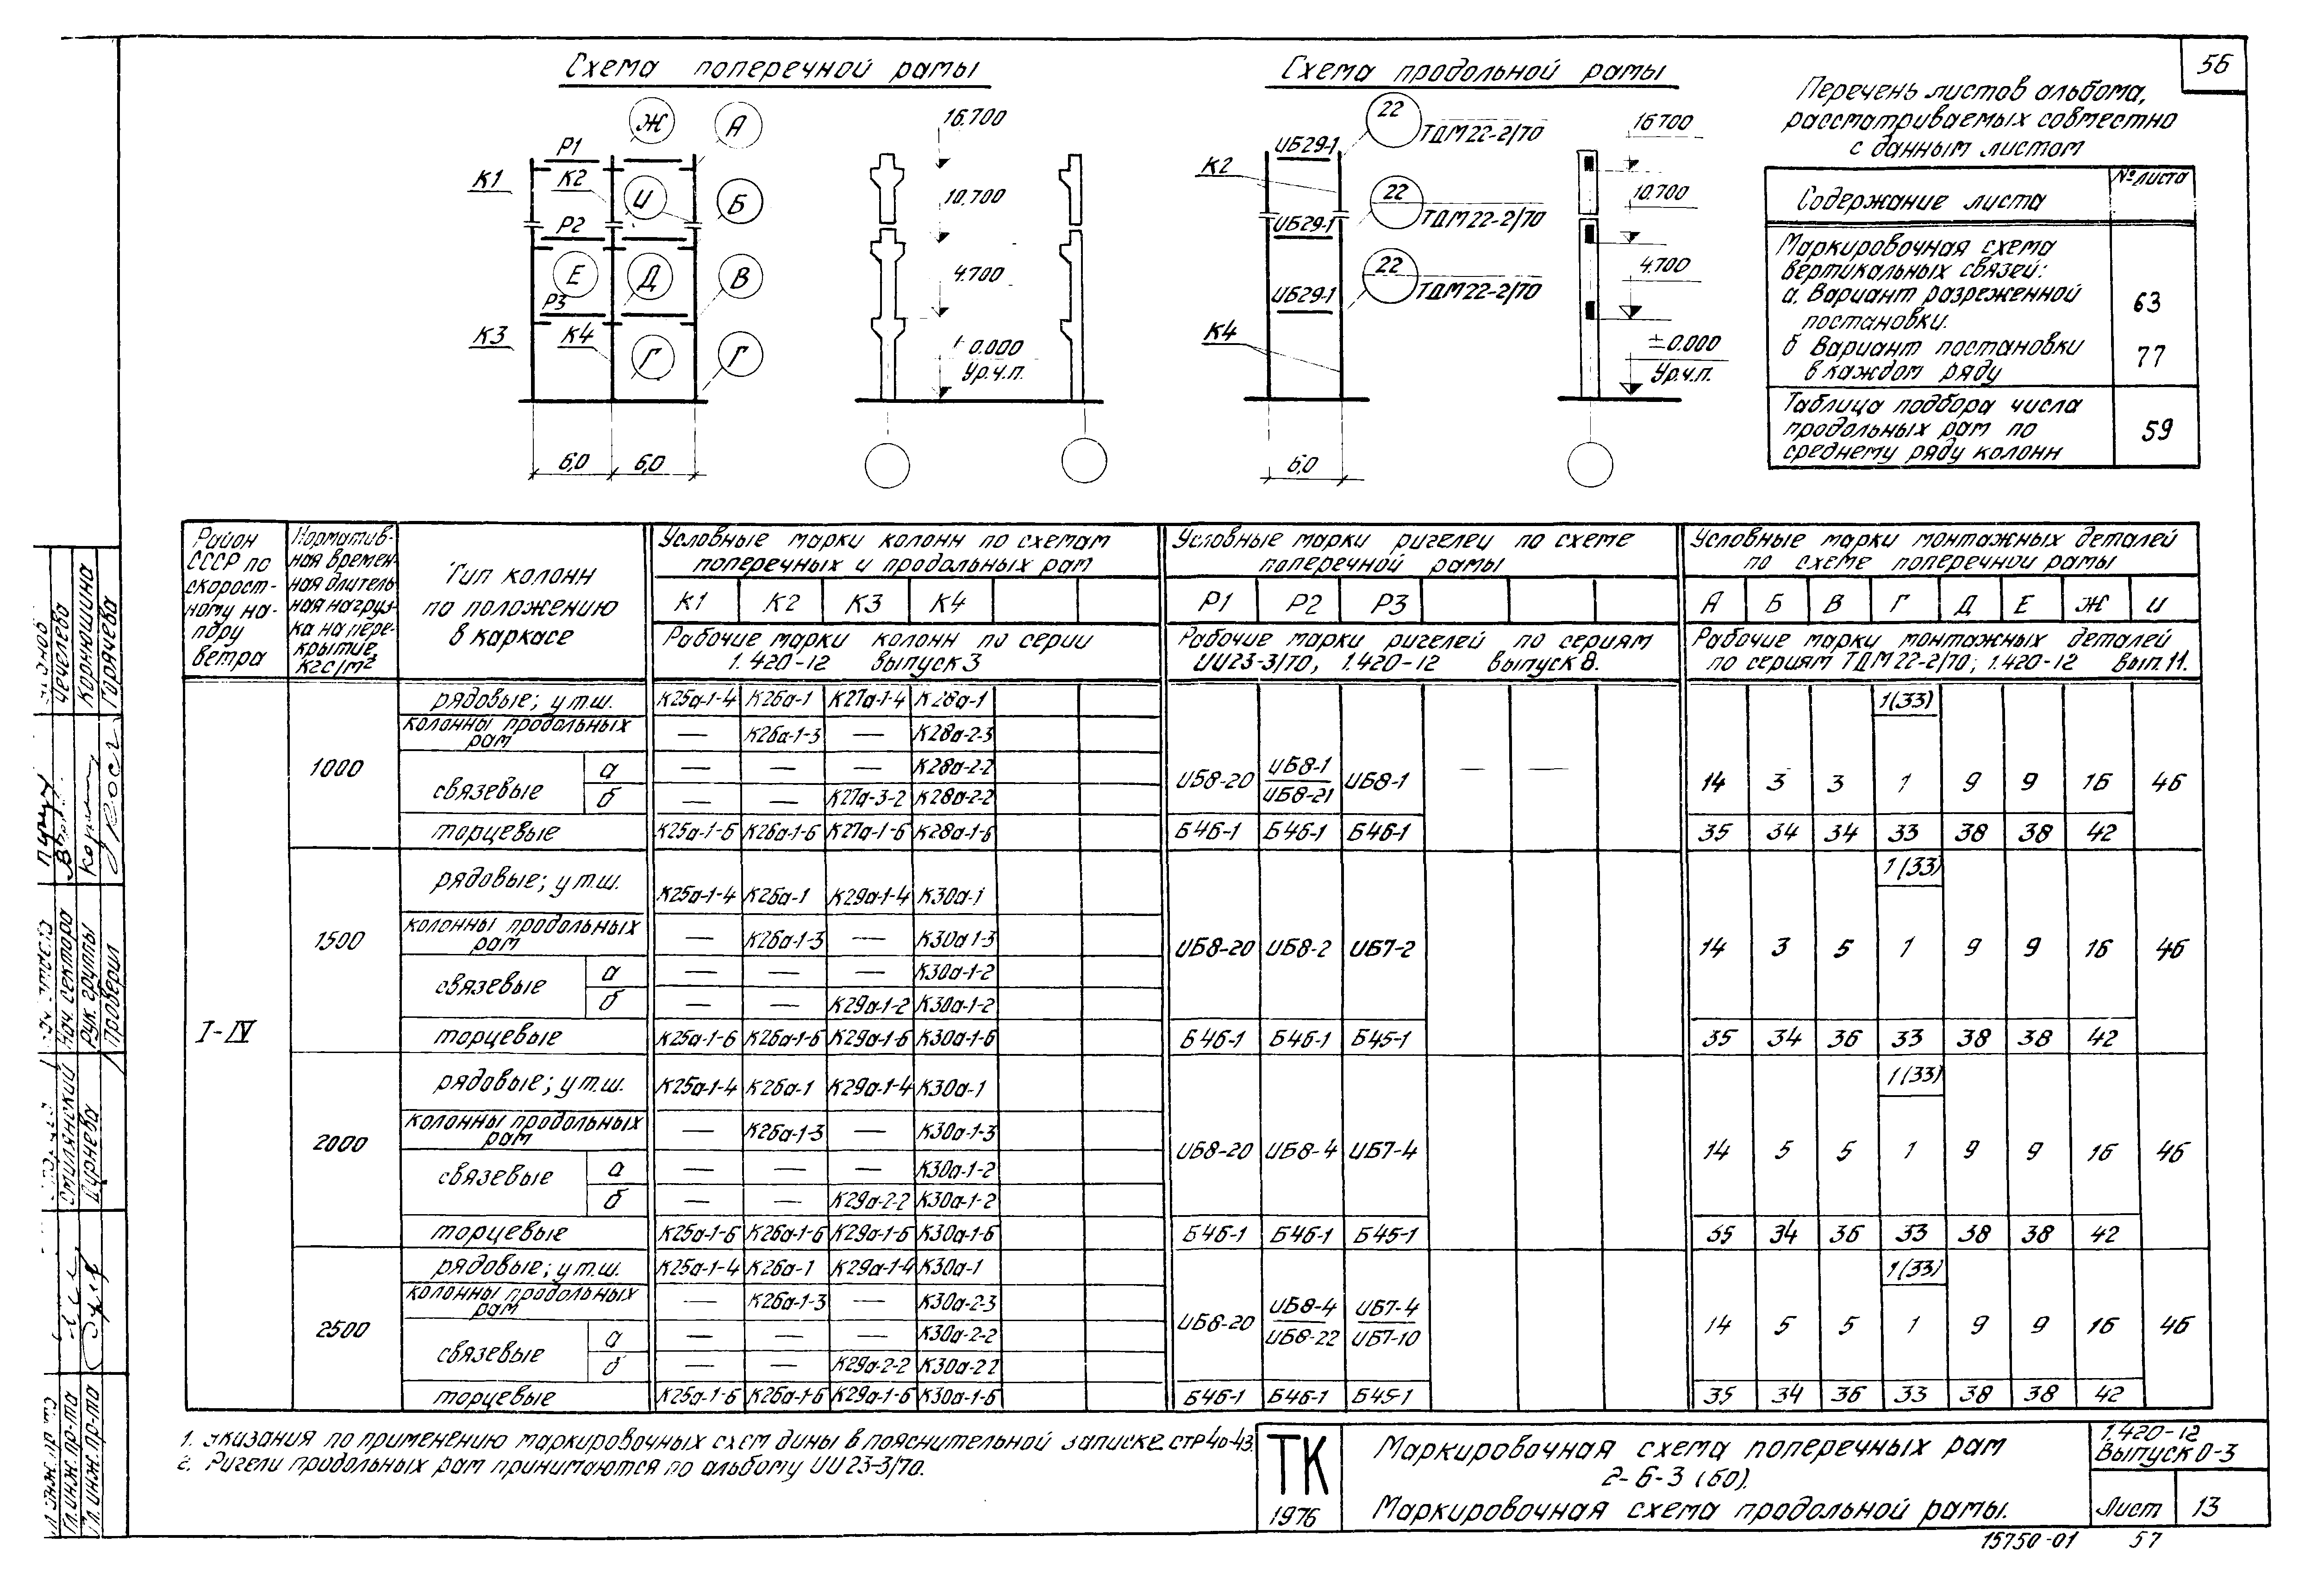 56
Схема поперечной рамы
Ж
А
Р1
К1
К2
И
Б
Р2
Е
Д
В
Р3
К3
К4
Г
Г
6,0
6,0
16.700
10.700
4.700
± 0.000
Ур.ч.п.
Схема продольной рамы
22
ТДМ22-2/70
ИБ29-1
К2
22
ТДМ22-2/70
ИБ29-1
22
ТДМ22-2/70
ИБ29-1
К4
6,0
16700
10.700
4.700
±0.000
Ур.ч.п.
Перечень листов альбома,
рассматриваемых совместно
с данным листом
Содержание листа
№ листа
Маркировочная схема
вертикальных связей:
а. Вариант разреженной
постановки.
63
б Вариант постановки
в каждом ряду
77
Таблица подбора числа
продольных рам по
среднему ряду колонн
59
Район
СССР по
скорост-
ному на-
пору
ветра
Норматив-
ная времен-
ная длитель
ная нагруз-
ка на пере-
крытие,
кгс/м²
Тип колонн
по положению
в каркасе
Условные марки колонн по схемам
поперечных и продольных рам
К1 К2 К3 К4
Рабочие марки колонн по серии
1.420-12 выпуск 3
Условные марки ригелей по схеме
поперечной рамы
Р1 Р2 Р3
Рабочие марки ригелей по сериям
ИИ23-3/70, 1.420-12 выпуск 8.
Условные марки монтажных деталей
по схеме поперечной рамы
А Б В Г Д Е Ж И
Рабочие марки монтажных деталей
по сериям ТДМ 22-2/70; 1.420-12 вып.11.
I-IV
1000
рядовые; у т.ш. К25а-1-4 К26а-1 К27а-1-4 К28а-1
1(33)
колонны продольных
рам
— К26а-1-3 — К28а-2-3
связевые
а — — — К28а-2-2
б — — К27а-3-2 К28а-2-2
ИБ8-20 ИБ8-1
ИБ8-21
ИБ8-1 — —
14 3 3 1 9 9 16 46
торцевые К25а-1-6 К26а-1-6 К27а-1-6 К28а-1-6 Б46-1 Б46-1 Б46-1 35 34 34 33 38 38 42
1500
рядовые; у т.ш. К25а-1-4 К26а-1 К29а-1-4 К30а-1
1(33)
колонны продольных
рам
— К26а-1-3 — К30а 1-3
связевые
а — — — К30а-1-2
б — — К29а-1-2 К30а-1-2
ИБ8-20 ИБ8-2 ИБ7-2
14 3 5 1 9 9 16 46
торцевые К25а-1-6 К26а-1-6 К29а-1-6 К30а-1-6 Б46-1 Б46-1 Б45-1 35 34 36 33 38 38 42
2000
рядовые; у т.ш. К25а-1-4 К26а-1 К29а-1-4 К30а-1
1(33)
колонны продольных
рам
— К26а-1-3 — К30а-1-3
связевые
а — — — К30а-1-2
б — — К29а-2-2 К30а-1-2
ИБ8-20 ИБ8-4 ИБ7-4
14 5 5 1 9 9 16 46
торцевые К25а-1-6 К26а-1-6 К29а-1-6 К30а-1-6 Б46-1 Б46-1 Б45-1 35 34 36 33 38 38 42
2500
рядовые; у т.ш. К25а-1-4 К26а-1 К29а-1-4 К30а-1
1(33)
колонны продольных
рам
— К26а-1-3 — К30а-2-3
связевые
а — — — К30а-2-2
б — — К29а-2-2 К30а-2 2
ИБ8-20 ИБ8-4
ИБ8-22
ИБ7-4
ИБ7-10
14 5 5 1 9 9 16 46
торцевые К25а-1-6 К26а-1-6 К29а-1-6 К30а-1-6 Б46-1 Б46-1 Б45-1 35 34 36 33 38 38 42
1. Указания по применению маркировочных схем даны в пояснительной записке стр 40-43.
2. Ригели продольных рам принимаются по альбому ИИ 23-3/70.
ТК
1976
Маркировочная схема поперечных рам
2-6-3 (60).
Маркировочная схема продольной рамы.
1.420-12
Выпуск 0-3
Лист 13
15750-01 57
Чечелева
Коронюшина
Горячева
Нач. сектора
Рук. группы
Проверил
Смилянский
Дурнева
Гл. инж. пр-та
Гл. инж. пр-та